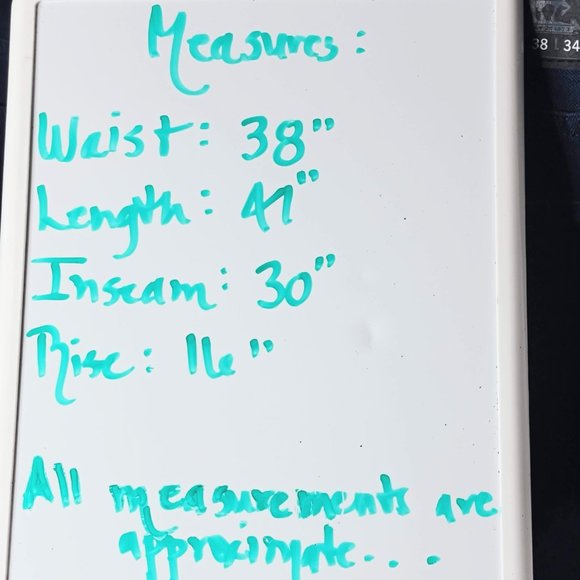 Measures:
38 34
Waist: 38"
Length: 41"
Inseam: 30"
Rise: 16"
All measurements are
approximate....